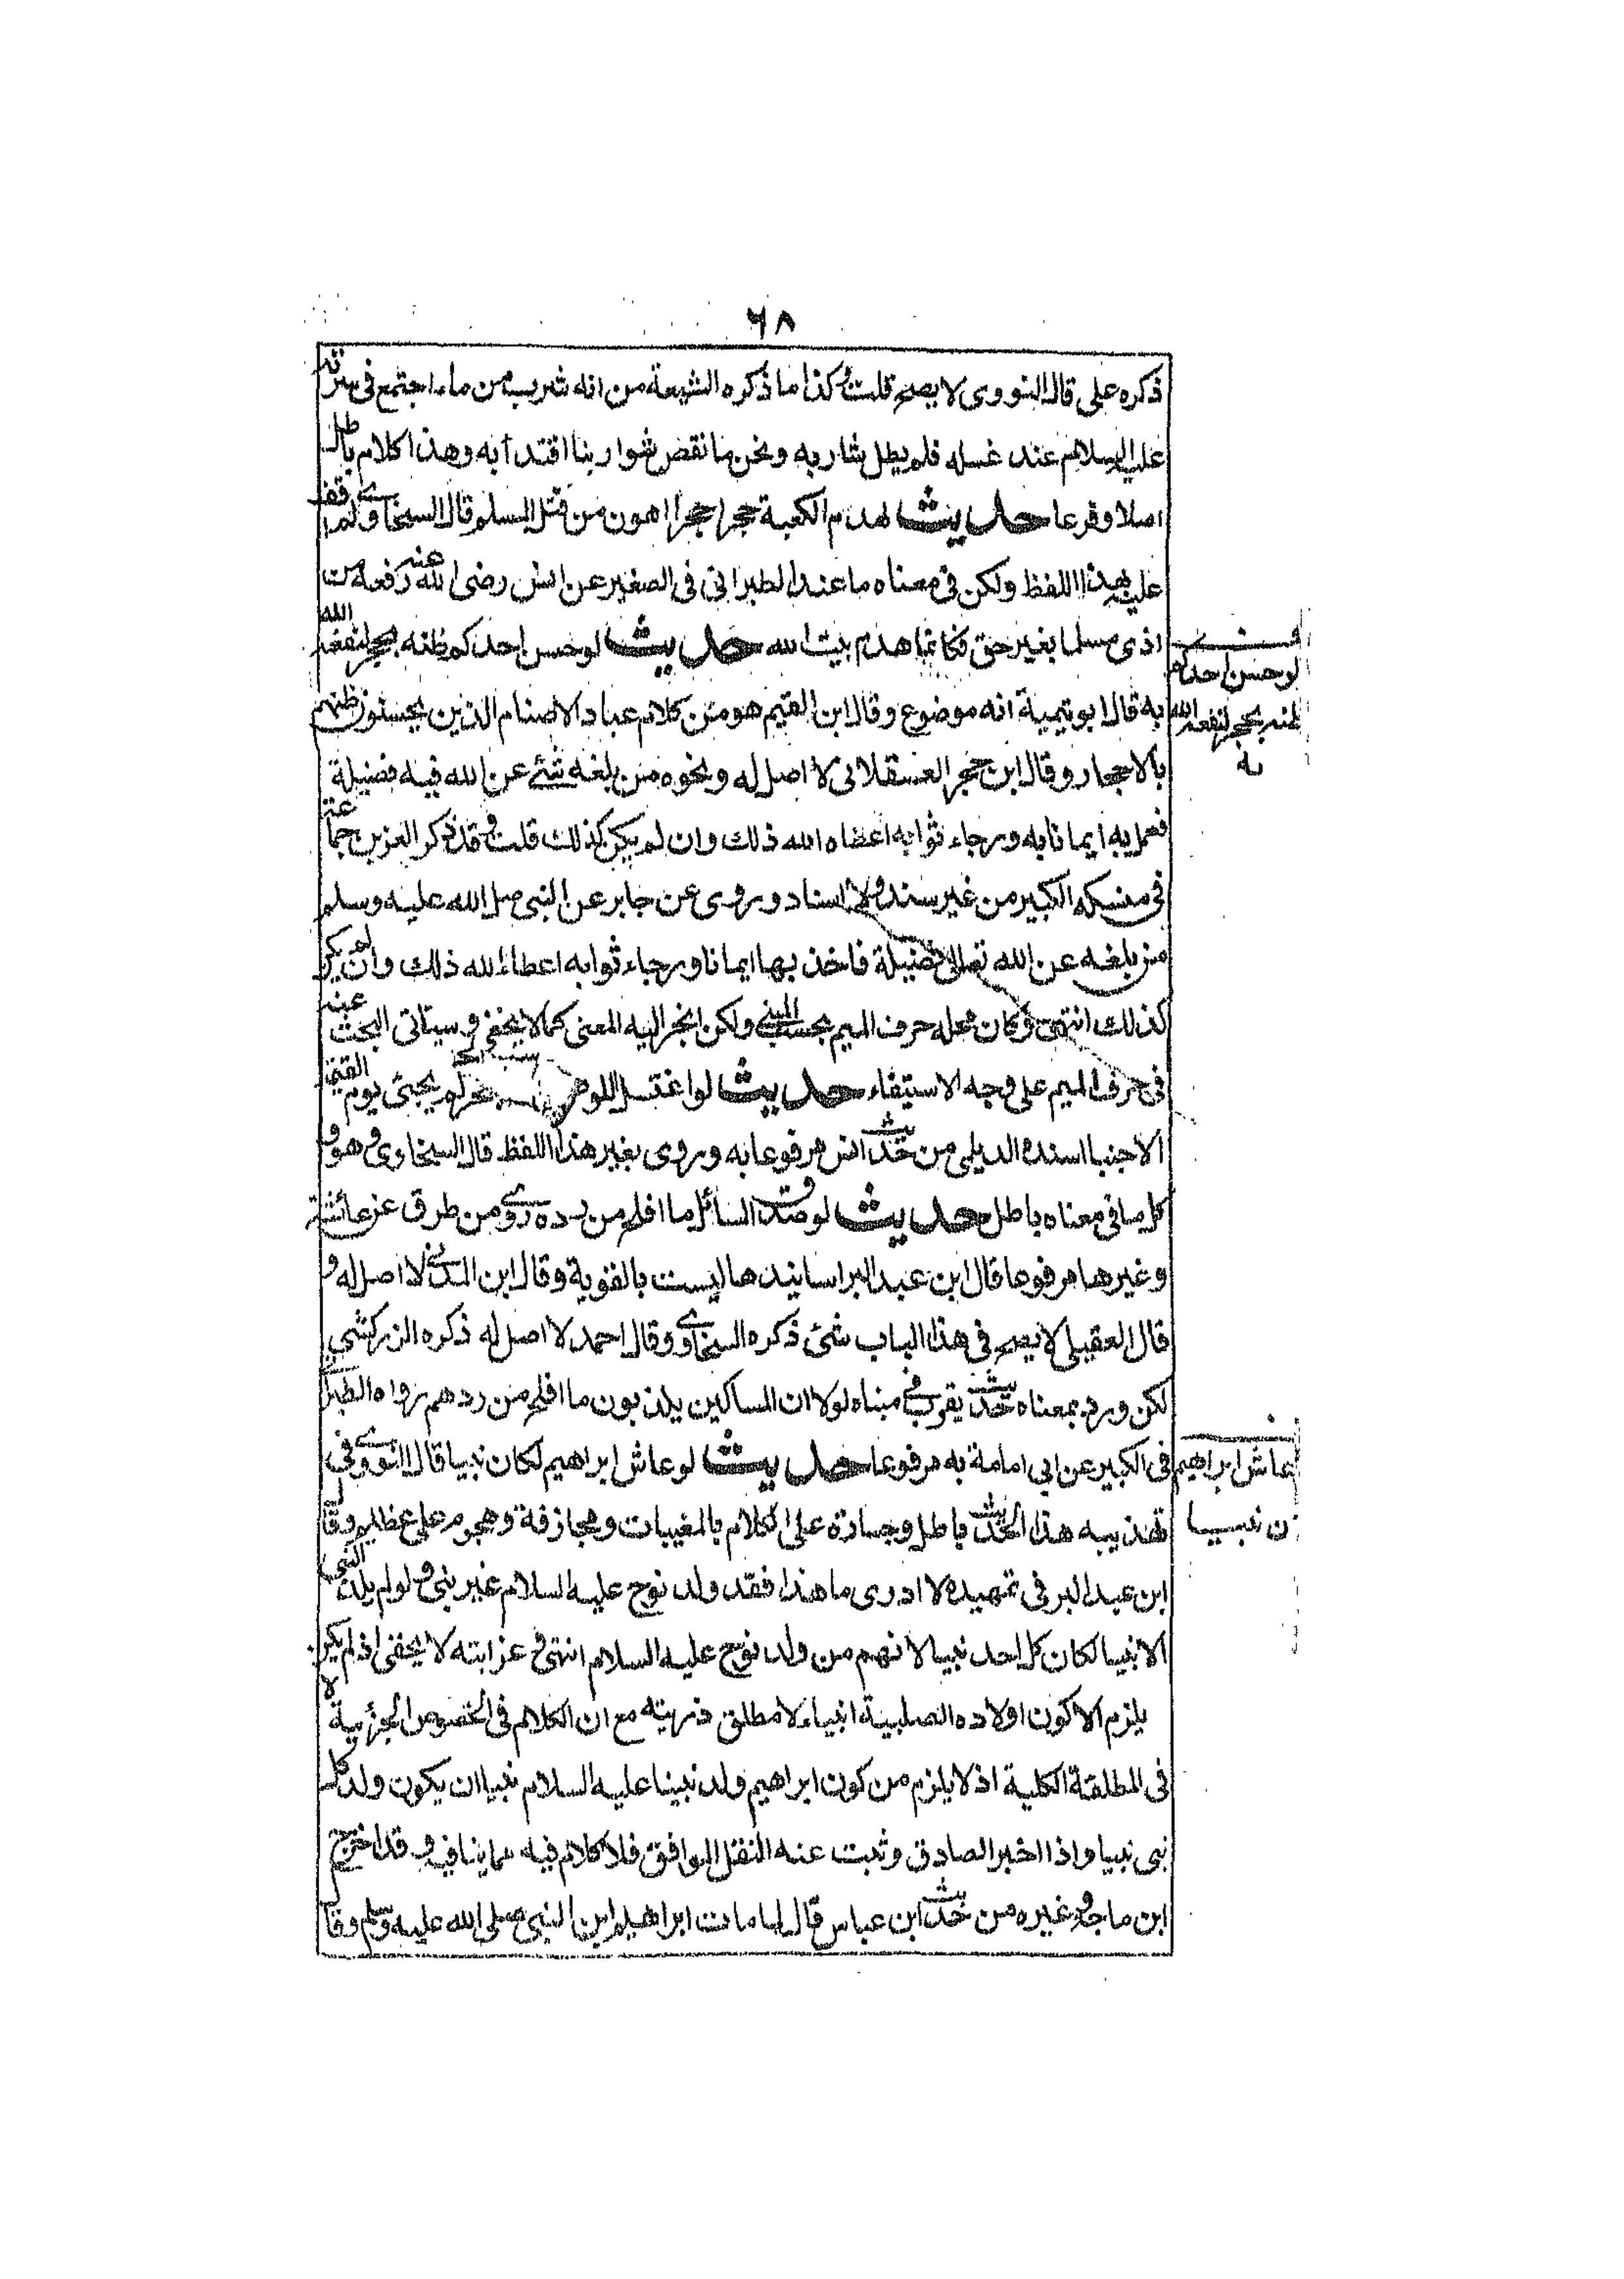 ٦٨
ذكره علي قال النووي لا يصح قلت وكذا ما ذكره الشيعة من انه شرب من ماء اجتمع في سرته
عليه السلام عند غسله فلم يطل شاربه ونحن ما نقص شواربنا اقتداً به وهذا كلام باطل
اصلا وفرعا حديث لهدم الكعبة حجرا حجرا اهون من قتل المسلم قال السخاوي لم اقف
عليه بهذا اللفظ ولكن في معناه ما عند الطبراني في الصغير عن انس رضى الله عنه رفعه من
اذى مسلما بغير حق فكانما هدم بيت الله حديث لو حسن احدكم ظنه بحجر لنفعه الله
به قال ابو تيمية انه موضوع وقال ابن القيم هو من كلام عباد الاصنام الذين يحسنون ظنهم
بالاحجار وقال ابن حجر العسقلاني لا اصل له ونحوه من بلغه شئ عن الله فيه فضيلة
فعمل به ايمانا به ورجاء ثوابه اعطاه الله ذلك وان لم يكن كذلك قلت وقد ذكر العز بن جماعة
في منسكه الكبير من غير سند ولا اسناد وروى عن جابر عن النبي صلى الله عليه وسلم
من بلغه عن الله تعالى فضيلة فاخذ بها ايمانا ورجاء ثوابه اعطاه الله ذلك وان لم يكن
كذلك انتهى وكان محله حرف الميم بحسب المبنى ولكن انجر اليه المعنى كما لا يخفى وسيأتي البحث عنه
في حرف الميم على وجه الاستيفاء حديث لو اغتسل اللوطي لم يجئ يوم القيمة
الا جنبا اسنده الديلمي من حديث انس مرفوعا به وروى بغير هذا اللفظ قال السخاوي وهو و
كل ما في معناه باطل حديث لو صدق السائل ما افلح من رده روي من طرق عن عائشة
وغيرها مرفوعا قال ابن عبد البر اسانيدها ليست بالقوية وقال ابن المديني لا اصل له و
قال العقيلي لا يصح في هذا الباب شئ ذكره السخاوي وقال احمد لا اصل له ذكره الزركشي
لكن ورد بمعناه حديث يقرب في مبناه لولا ان المساكين يكذبون ما افلح من ردهم رواه الطبراني
في الكبير عن ابي امامة به مرفوعا حديث لو عاش ابراهيم لكان نبيا قال النووي في
تهذيبه هذا الحديث باطل وجسارة على الكلام بالمغيبات ومجازفة وهجوم على عظيم وقال
ابن عبد البر في تمهيده لا ادرى ما هذا فقد ولد نوح عليه السلام غير نبي ولو لم يلد النبي
الا نبيا لكان كل احد نبيا لانهم من ولد نوح عليه السلام انتهى وغرابته لا يخفى اذ لم يكن
يلزم الا كون اولاده الصلبية انبياء لا مطلق ذريته مع ان الكلام في الخصوص الجزئية لا
في المطلقة الكلية اذ لا يلزم من كون ابراهيم ولد نبينا عليه السلام نبيا ان يكون ولد كل
نبي نبيا واذا اخبر الصادق وثبت عنه النقل الموافق فلا كلام فيه مما ينافيه وقد اخرج
ابن ماجه وغيره من حديث ابن عباس قال لما مات ابراهيم ابن النبي صلى الله عليه وسلم وقال
لو حسن احدكم
ظنه بحجر لنفعه الله
به
عاش ابراهيم
ن نبيا